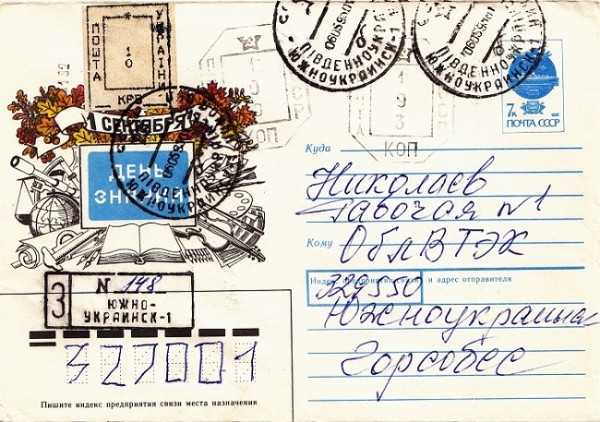 ПОШТА УКРАЇНИ
10
КРБ
КОП
ПІВДЕННОУКРАЇНСЬК-1
ЮЖНОУКРАИНСК-1
ПІВДЕННОУКРАЇНСЬК-1
ЮЖНОУКРАИНСК-1
7к
ПОЧТА СССР
1 СЕНТЯБРЯ
ДЕНЬ
ЗНАНИЙ
ЮЖНОУКРАИНСК-1
Куда
Николаев
Рабочая №1
Кому
ОблВТЭК
Индекс и адрес отправителя
329550
Южноукраинск
Горсобес
З
N 148
ЮЖНО-
УКРАИНСК-1
327001
Пишите индекс предприятия связи места назначения